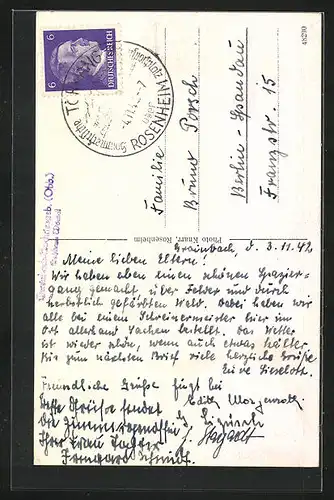 6 6
DEUTSCHES REICH
-4.11.4 -7
über
ROSENHEIM
48290
Familie
Bruno Porsch
Berlin-Spandau
Franzstr. 15
Photo Knarr, Rosenheim
Grainbach, d. 3.11.42
Meine lieben Eltern!
Wir haben eben einen schönen Spazier-
gang gemacht, über Felder und durch
herbstlich gefärbten Wald. Dabei haben wir
alle bei einem Schreinermeister hier im
Ort allerhand Sachen bestellt. Das Wetter
ist wieder schön, wenn auch etwas kälter.
Bis zum nächsten Brief viele herzliche Grüße
Eure Lieselott.
Freundliche Grüße fügt bei
Beste Grüße sendet
die Zimmergenossin
Ihrer Frau Tochter
Irmgard Schmidt.